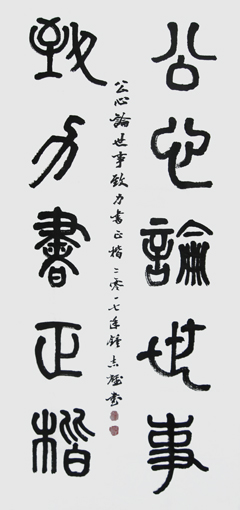 公心論世事
致力書正楷
公心論世事致力書正楷二零一七年鍾志強書